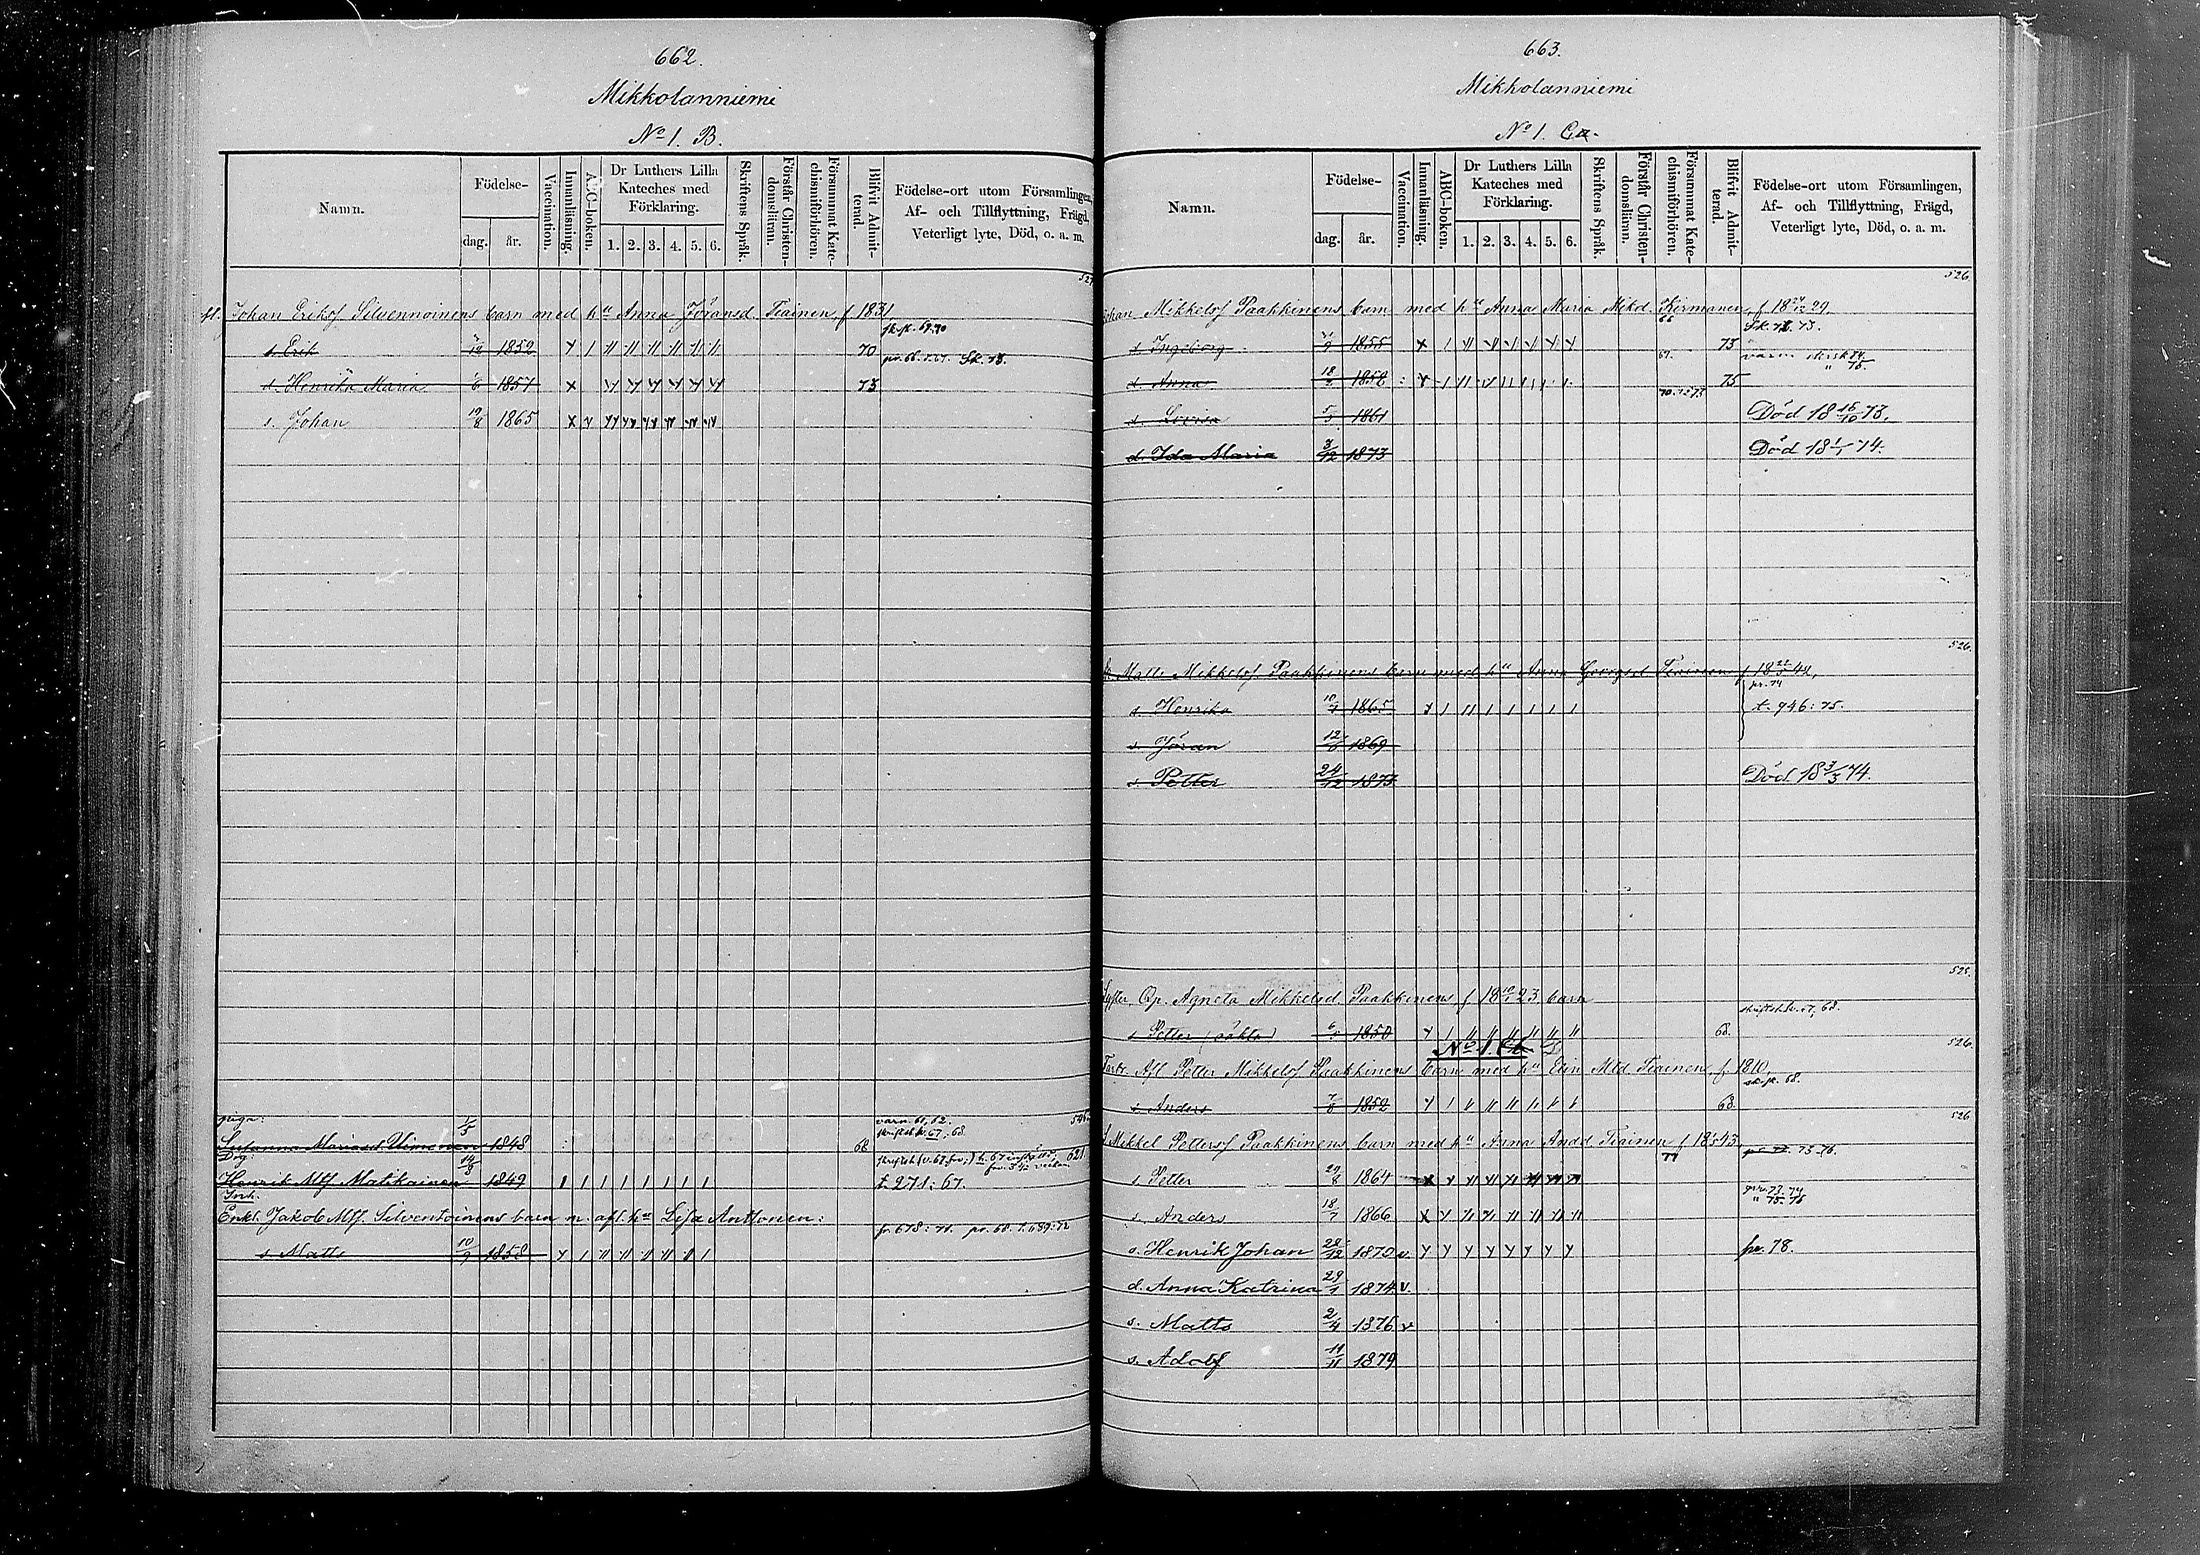 662.
Mikkolanniemi
No 1. B.
Namn.
Födelse-
dag. år.
Vaccination.
Innanläsning.
ABC-boken.
Dr Luthers Lilla Kateches med Förklaring.
1. 2. 3. 4. 5. 6.
Skriftens Språk.
Förstår Christen-domsläran.
Försummat Kate-chismiförhören.
Blifvit Admit-terad.
Födelse-ort utom Församlingen, Af- och Tillflyttning, Frägd, Veterligt lyte, Död, o. a. m.
Johan Eriksf Silvennoinens barn med hu Anna Jöransd. Tiainen f 1831
s. Erik 1852 70
d. Henrika Maria 1857 73
s. Johan 19/8 1865
piga:
Susanna Mariasd Uimonen 1/5 1848 68
Drg:
Henrik Mf Matikainen 14/3 1849 t. 271: 67.
Inh.
Enkl. Jakob Mf. Silventoinens barn m. afl. hu Lisa Anttonen:
s. Matts 10/9 1858
663.
Mikkolanniemi
No 1. Ca.
Namn.
Födelse-
dag. år.
Vaccination.
Innanläsning.
ABC-boken.
Dr Luthers Lilla Kateches med Förklaring.
1. 2. 3. 4. 5. 6.
Skriftens Språk.
Förstår Christen-domsläran.
Försummat Kate-chismiförhören.
Blifvit Admit-terad.
Födelse-ort utom Församlingen, Af- och Tillflyttning, Frägd, Veterligt lyte, Död, o. a. m.
526
Johan Mikkelsf Paakkinens barn med hu Anna Maria Mikd. Kirmanen, f 18 24/12 29.
d. Ingeborg 1855 73
d. Anna 1858 75
d. Lovisa 5/3 1861 Död 18 15/10 73.
d. Ida Maria 3/12 1873 Död 18 1/1 74.
526.
Matts Mikkelsf. Paakkinens barn med hu Anna Georgsd Tiainen f 18 42,
pr. 74
d. Henrika 1865 t. 946: 75.
s. Jöran 1869
s. Petter 24/12 1873 Död 18 3/3 74.
525.
Syster, Qp. Agneta Mikkelsd Paakkinens f 18 23 barn
s Petter (oäkta) 1850 68.
No 1. Cb
526.
Farbr. Afl. Petter Mikkelsf Paakkinens barn med hu Elin Mtd. Tiainen, f. 1810,
s Anders 7/8 1852 68.
526
Mikkel Pettersf Paakkinens barn med hu Anna Andd Tiainen f 18 43,
77
s. Petter 29/8 1864
s. Anders 18/7 1866
s. Henrik Johan 28/12 1870 v. pr. 78.
d. Anna Katrina 29/1 1874 v.
s. Matts 2/4 1876 v
s. Adolf 11/11 1879